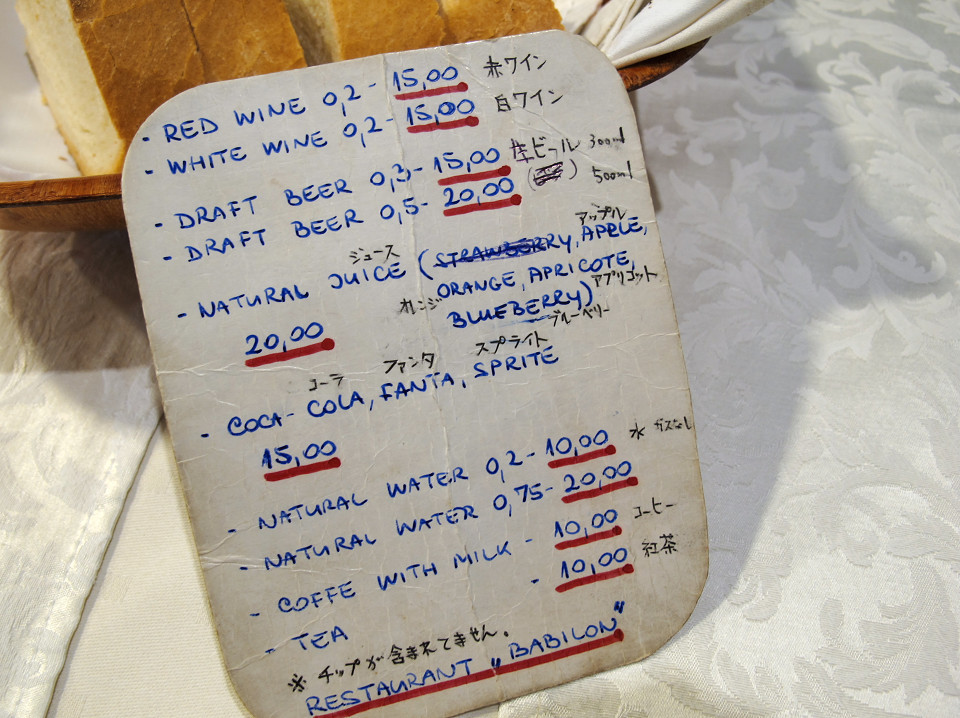 · RED WINE 0,2 - 15,00 赤ワイン
· WHITE WINE 0,2 - 15,00 白ワイン
· DRAFT BEER 0,3 - 15,00 生ビール 300ml
· DRAFT BEER 0,5 - 20,00 ( ) 500ml
ジュース アップル
· NATURAL JUICE (STRAWBERRY, APPLE,
オレンジ ORANGE, APRICOTE, アプリコット
BLUEBERRY) ブルーベリー
20,00
コーラ ファンタ スプライト
· COCA-COLA, FANTA, SPRITE
15,00
- NATURAL WATER 0,2 - 10,00 水 ガスなし
- NATURAL WATER 0,75 - 20,00
- COFFE WITH MILK - 10,00 コーヒー
- TEA - 10,00 紅茶
※ チップが含まれてません。
RESTAURANT "BABILON"